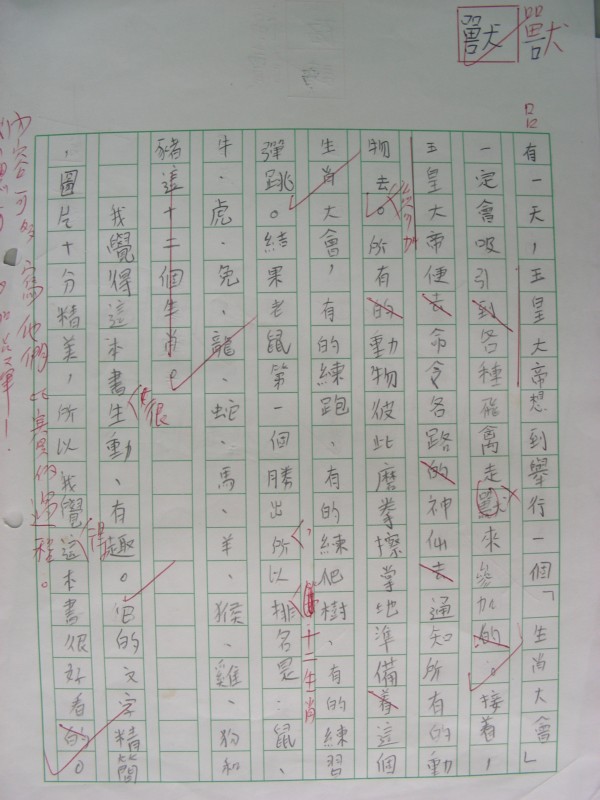 獸 獸
有一天，玉皇大帝想到舉行一個「生肖大會」
一定會吸引到各種飛禽走獸來參加的。接着，
玉皇大帝便去命令各路的神仙去通知所有的動
物去。所有的動物彼此磨拳擦掌地準備着這個
生肖大會，有的練跑、有的練爬樹、有的練習
十二生肖
彈跳。結果老鼠第一個勝出所以排名是：鼠、
牛、虎、兔、龍、蛇、馬、羊、猴、雞、狗和
豬這十二個生肖。
很
我覺得這本書生動、有趣。它的文字精簡
得
，圖片十分精美，所以我覺這本書很好看的。
內容可 寫他們比 的過程。